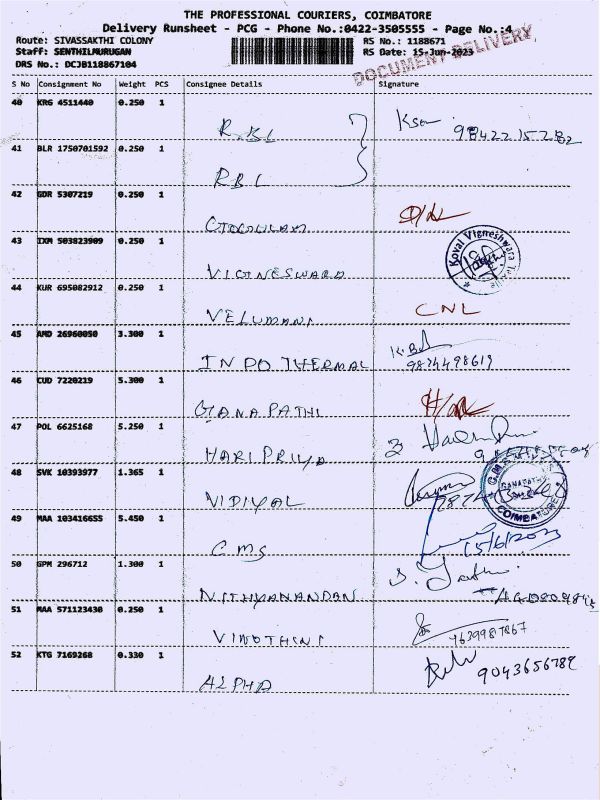 THE PROFESSIONAL COURIERS, COIMBATORE
Delivery Runsheet - PCG - Phone No.:0422-3505555 - Page No.:4
Route: SIVASAKTHI COLONY RS No.: 1188671
Staff: SENTHILMURUGAN RS Date: 15-Jun-2023
DRS No.: DCJB118867104
DOCUMENT DELIVERY
S No Consignment No Weight PCS Consignee Details Signature
40 KRG 4511440 0.250 1 RBL
41 BLR 1750701592 0.250 1 RBL
42 GDR 5307219 0.250 1 GOKULAM
43 IXM 503823909 0.250 1 VIGNESWARA Kovai Vigneshwara Textile
44 KUR 695082912 0.250 1 VELUMANI CNL
45 AMD 26960050 3.300 1 INDO THERMAL 9874498619
46 CUD 7220219 5.300 1 GANAPATHI
47 POL 6625168 5.250 1 HARI PRIYA
48 SVK 10393977 1.365 1 VIDIYAL GANAPATHY COIMBATORE
49 MAA 103416655 5.450 1 CMS 15/6/2023
50 GPM 296712 1.300 1 NITHYANANDAN
51 MAA 571123430 0.250 1 VINOTHINI
52 KTG 7169268 0.330 1 ALPHA 9043656789